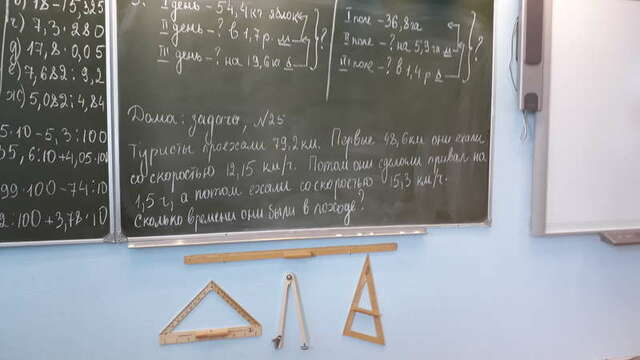 18-15,325
г) 7,3·280
д) 17,8·0,05
е) 7,682:9,2
ж) 5,082:4,84
5·10-5,3:100
35,6:10+4,05·100
99·100-74:10
2:100+3,78·10
I день - 54,4 кг яблок
II день - ? в 1,7 р. м
III день - ? на 19,6 кг б
?
I поле - 36,8 га
II поле - ? на 5,9 га м
III поле - ? в 1,4 р б
?
Дома: задача, №25
Туристы проехали 79,2 км. Первые 48,6 км они ехали
со скоростью 12,15 км/ч. Потом они сделали привал на
1,5 ч, а потом ехали со скоростью 15,3 км/ч.
Сколько времени они были в походе?